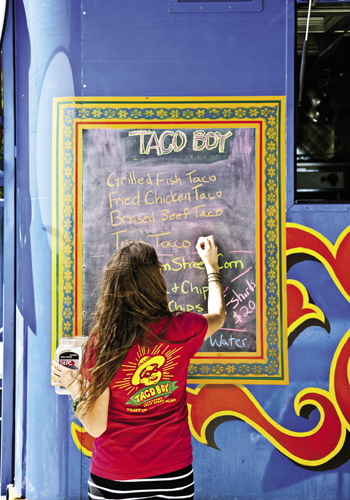 TACO BOY
Grilled Fish Taco
Fried Chicken Taco
Braised Beef Taco
Taco
Street Corn
+ Chips
Chips
Shirts
$20
Water
TACO BOY